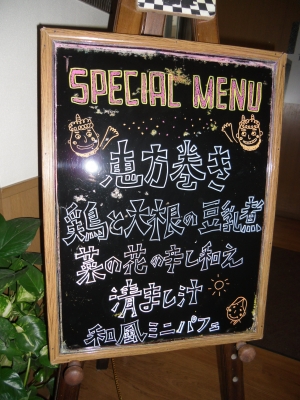 SPECIAL MENU
恵方巻き
鶏と大根の豆乳煮
菜の花の辛し和え
清まし汁
和風ミニパフェ